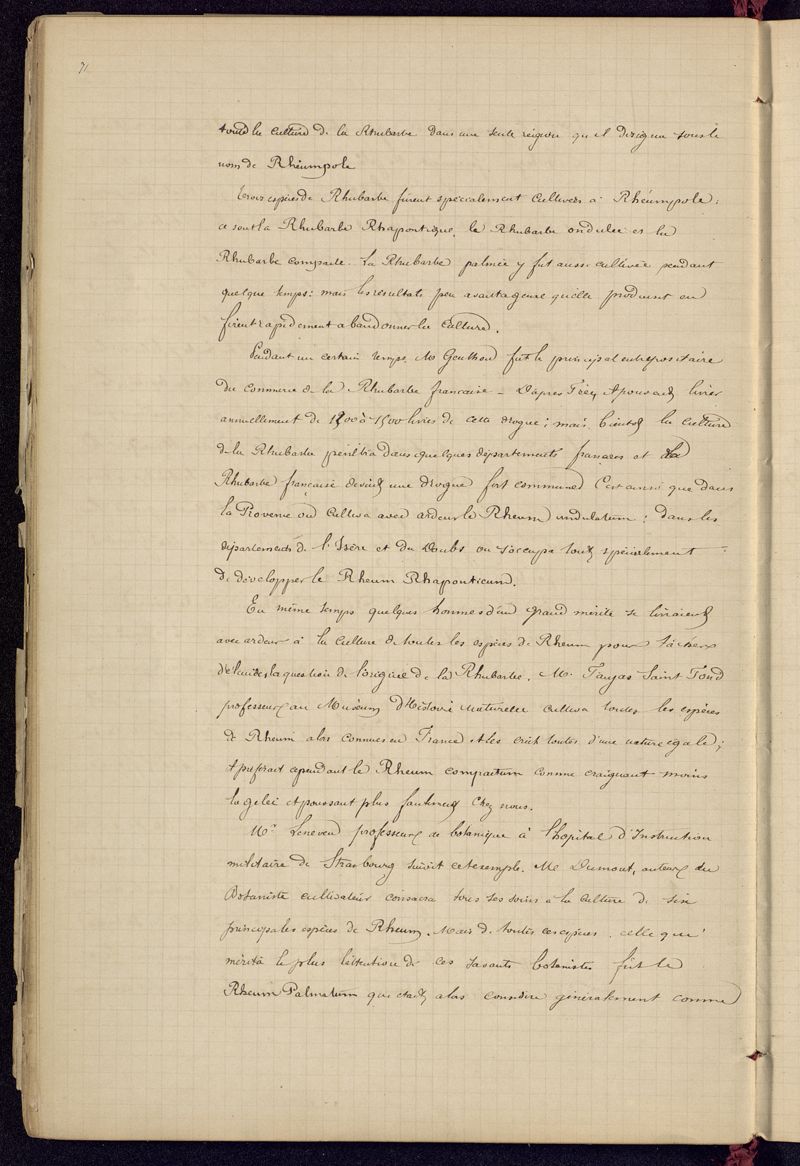 71
toute la culture de la Rhubarbe dans une seule région qu'il désigna sous le
nom de Rhéumpole
Trois espèces de Rhubarbe furent spécialement cultivées à Rhéumpole :
ce sont la Rhubarbe Rhapontique, la Rhubarbe ondulée et la
Rhubarbe compacte. La Rhubarbe palmée y fut aussi cultivée pendant
quelque temps : mais les résultats peu avantageux qu'elle produisit en
firent rapidement abandonner la culture.
Pendant un certain temps, Mr Genthon fut le principal entrepositaire
du commerce de la Rhubarbe française - D'après Fée, il pouvait livrer
annuellement de 1200 à 1500 livres de cette drogue ; mais bientôt la culture
de la Rhubarbe pénétra dans quelques départements français et la
Rhubarbe française devint une drogue fort commune C'est ainsi que dans
la Provence on cultiva avec ardeur le Rheum undulatum : dans les
départements de l'Isère et du Doubs on s'occupa tout spécialement
de développer le Rheum Rhaponticum.
En même temps quelques hommes d'un grand mérite se livraient
avec ardeur à la culture de toutes les espèces de Rheum pour tâcher
d'élucider la question de l'origine de la Rhubarbe. Mr Faujas Saint Fond
professeur au Muséum d'Histoire Naturelle cultiva toutes les espèces
de Rheum alors connues en France et les crût toutes d'une nature égale ;
il préférait cependant le Rheum compactum comme craignant moins
la gelée et poussant plus facilement chez nous.
Mr professeur de botanique à l'hôpital d'Instruction
militaire de Strasbourg suivit cet exemple. Mr Dumont, auteur du
Botaniste cultivateur consacra tous ses soins à la culture de six
principales espèces de Rheum. Mais de toutes ces espèces celle qui
mérita le plus l'attention de ces savants botanistes fut le
Rheum Palmatum qui était alors considéré généralement comme